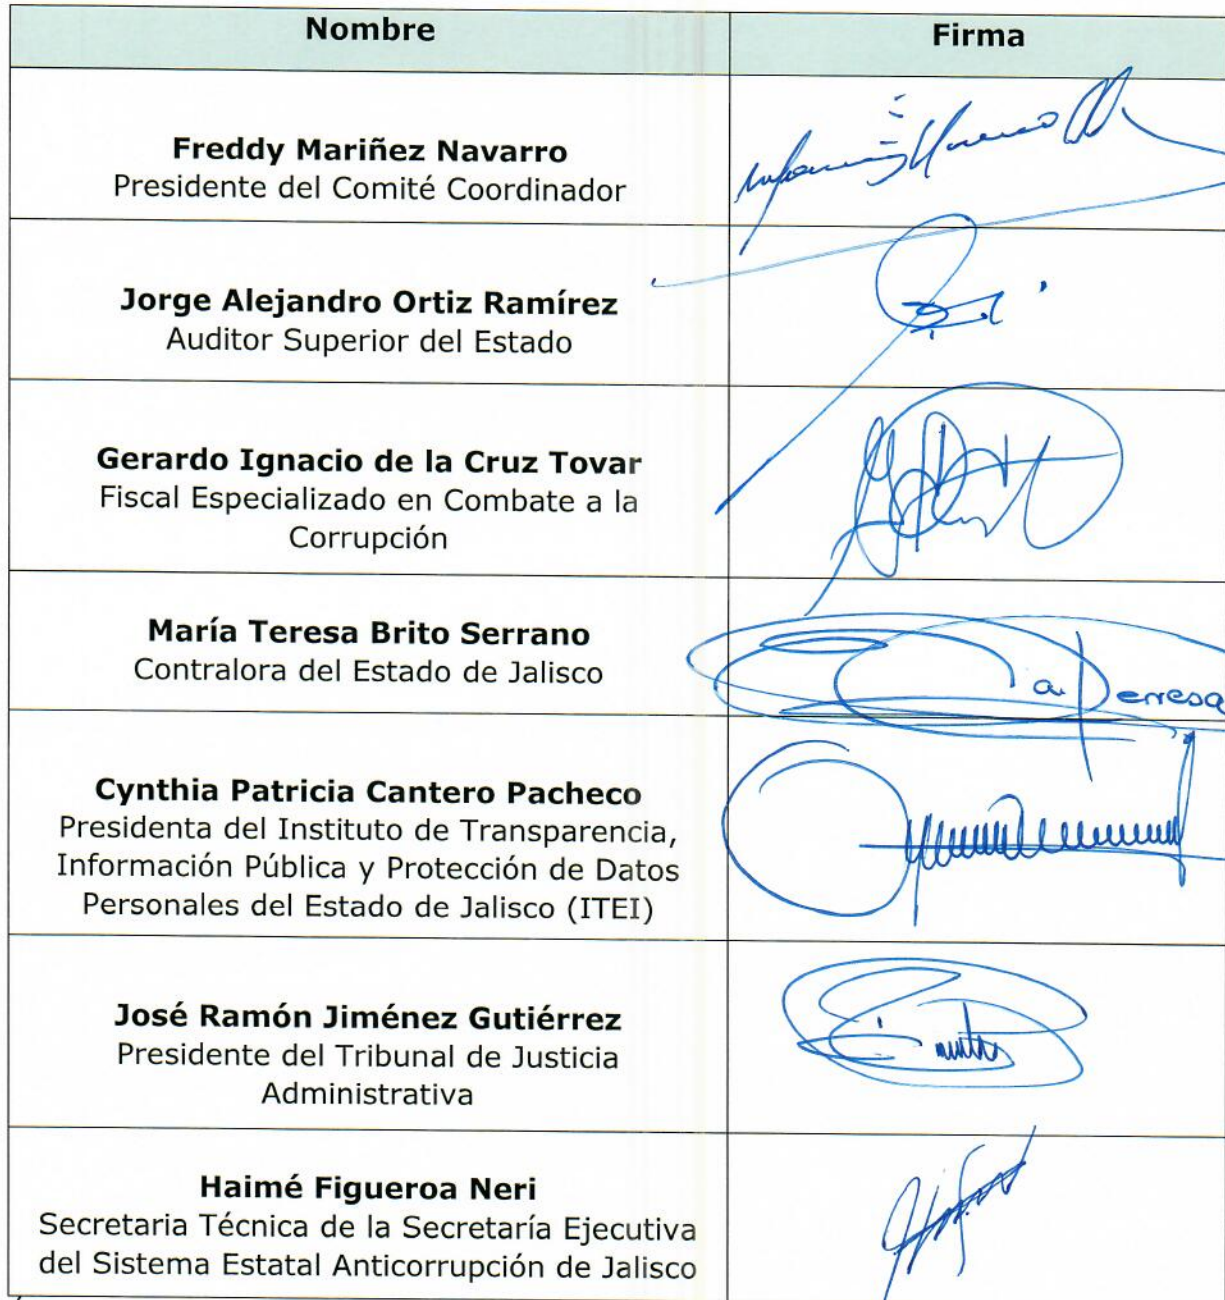 Nombre
Firma
Freddy Mariñez Navarro
Presidente del Comité Coordinador
Jorge Alejandro Ortiz Ramírez
Auditor Superior del Estado
Gerardo Ignacio de la Cruz Tovar
Fiscal Especializado en Combate a la
Corrupción
María Teresa Brito Serrano
Contralora del Estado de Jalisco
Cynthia Patricia Cantero Pacheco
Presidenta del Instituto de Transparencia,
Información Pública y Protección de Datos
Personales del Estado de Jalisco (ITEI)
José Ramón Jiménez Gutiérrez
Presidente del Tribunal de Justicia
Administrativa
Haimé Figueroa Neri
Secretaria Técnica de la Secretaría Ejecutiva
del Sistema Estatal Anticorrupción de Jalisco